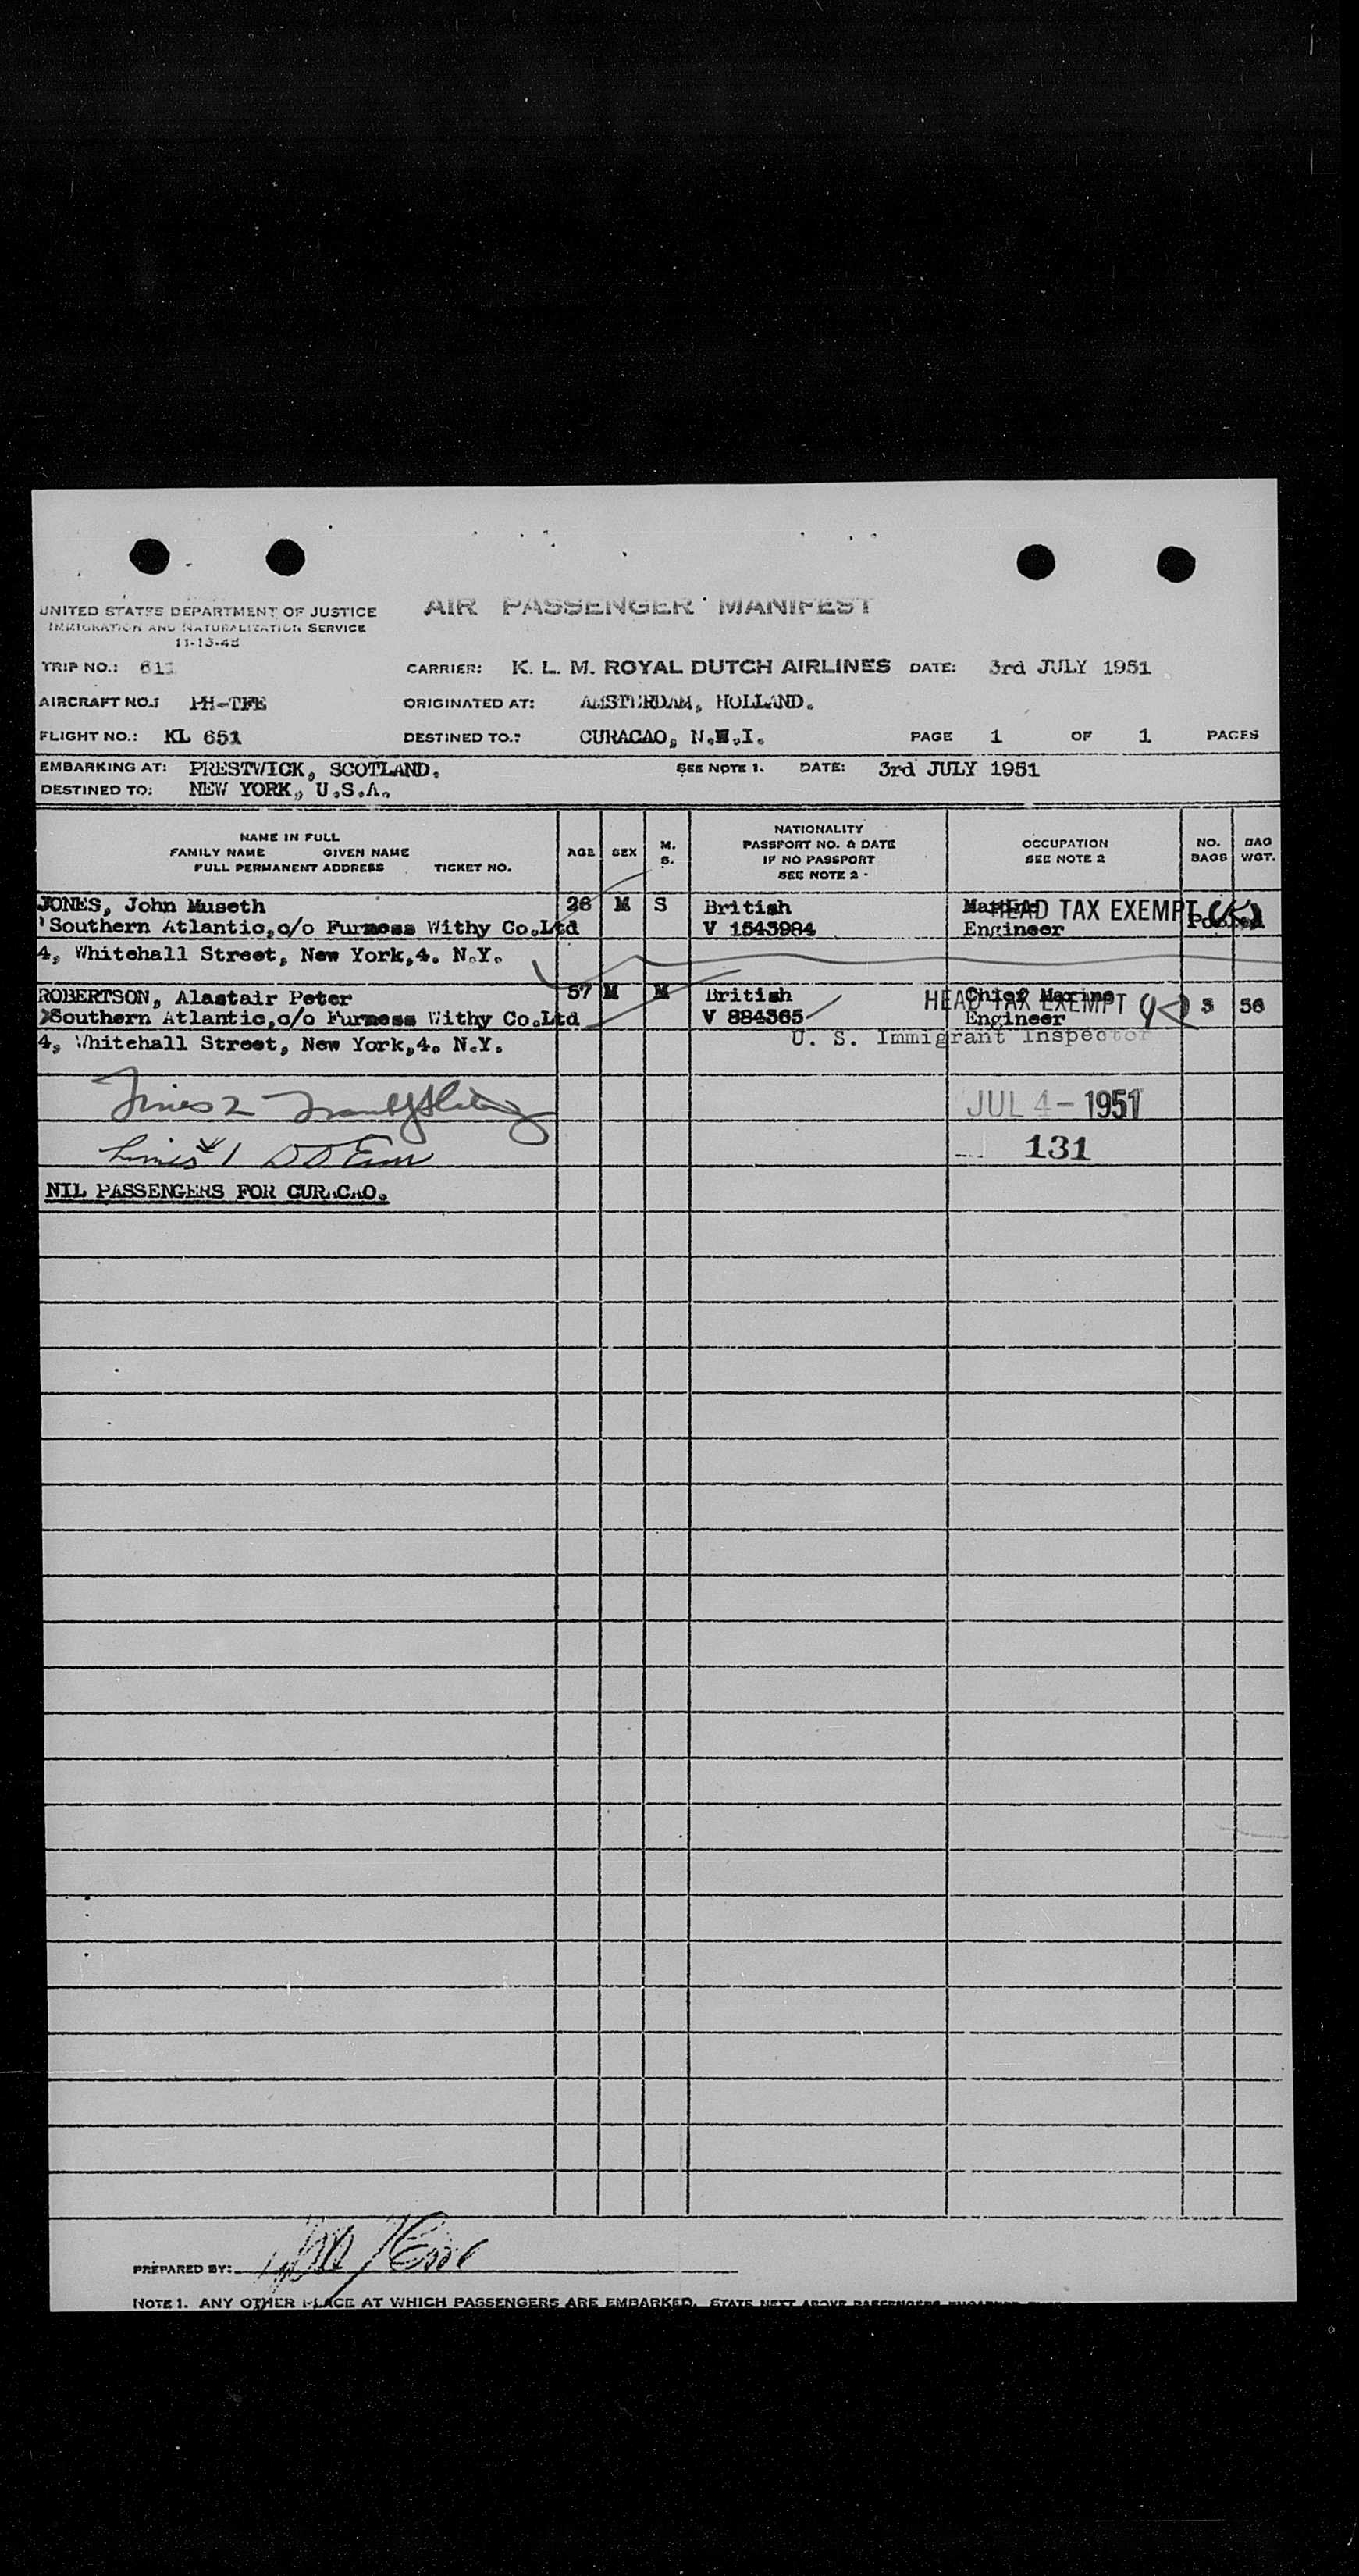 UNITED STATES DEPARTMENT OF JUSTICE
IMMIGRATION AND NATURALIZATION SERVICE
11-15-48
AIR PASSENGER MANIFEST
TRIP NO.: 611 CARRIER: K. L. M. ROYAL DUTCH AIRLINES DATE: 3rd JULY 1951
AIRCRAFT NO.: PH-TFE ORIGINATED AT: AMSTERDAM, HOLLAND.
FLIGHT NO.: KL 651 DESTINED TO.: CURACAO, N.W.I. PAGE 1 OF 1 PAGES
EMBARKING AT: PRESTWICK, SCOTLAND. SEE NOTE 1. DATE: 3rd JULY 1951
DESTINED TO: NEW YORK, U.S.A.
NAME IN FULL
FAMILY NAME GIVEN NAME
FULL PERMANENT ADDRESS TICKET NO.
AGE SEX M. S.
NATIONALITY
PASSPORT NO. & DATE
IF NO PASSPORT
SEE NOTE 2
OCCUPATION
SEE NOTE 2
NO. BAGS
BAG WGT.
JONES, John Museth 26 M S British HEAD TAX EXEMPT
Southern Atlantic,c/o Furness Withy Co.Ltd V 1543984 Engineer Pooled
4, Whitehall Street, New York,4. N.Y.
ROBERTSON, Alastair Peter 57 M M British Chief Marine HEAD TAX EXEMPT 3 56
Southern Atlantic,c/o Furness Withy Co.Ltd V 884365 Engineer
4, Whitehall Street, New York,4. N.Y. U. S. Immigrant Inspector
Lines 2
JUL 4 - 1951
Lines #1
131
NIL PASSENGERS FOR CURACAO.
PREPARED BY:
NOTE 1. ANY OTHER PLACE AT WHICH PASSENGERS ARE EMBARKED, STATE NEXT ABOVE PASSENGERS